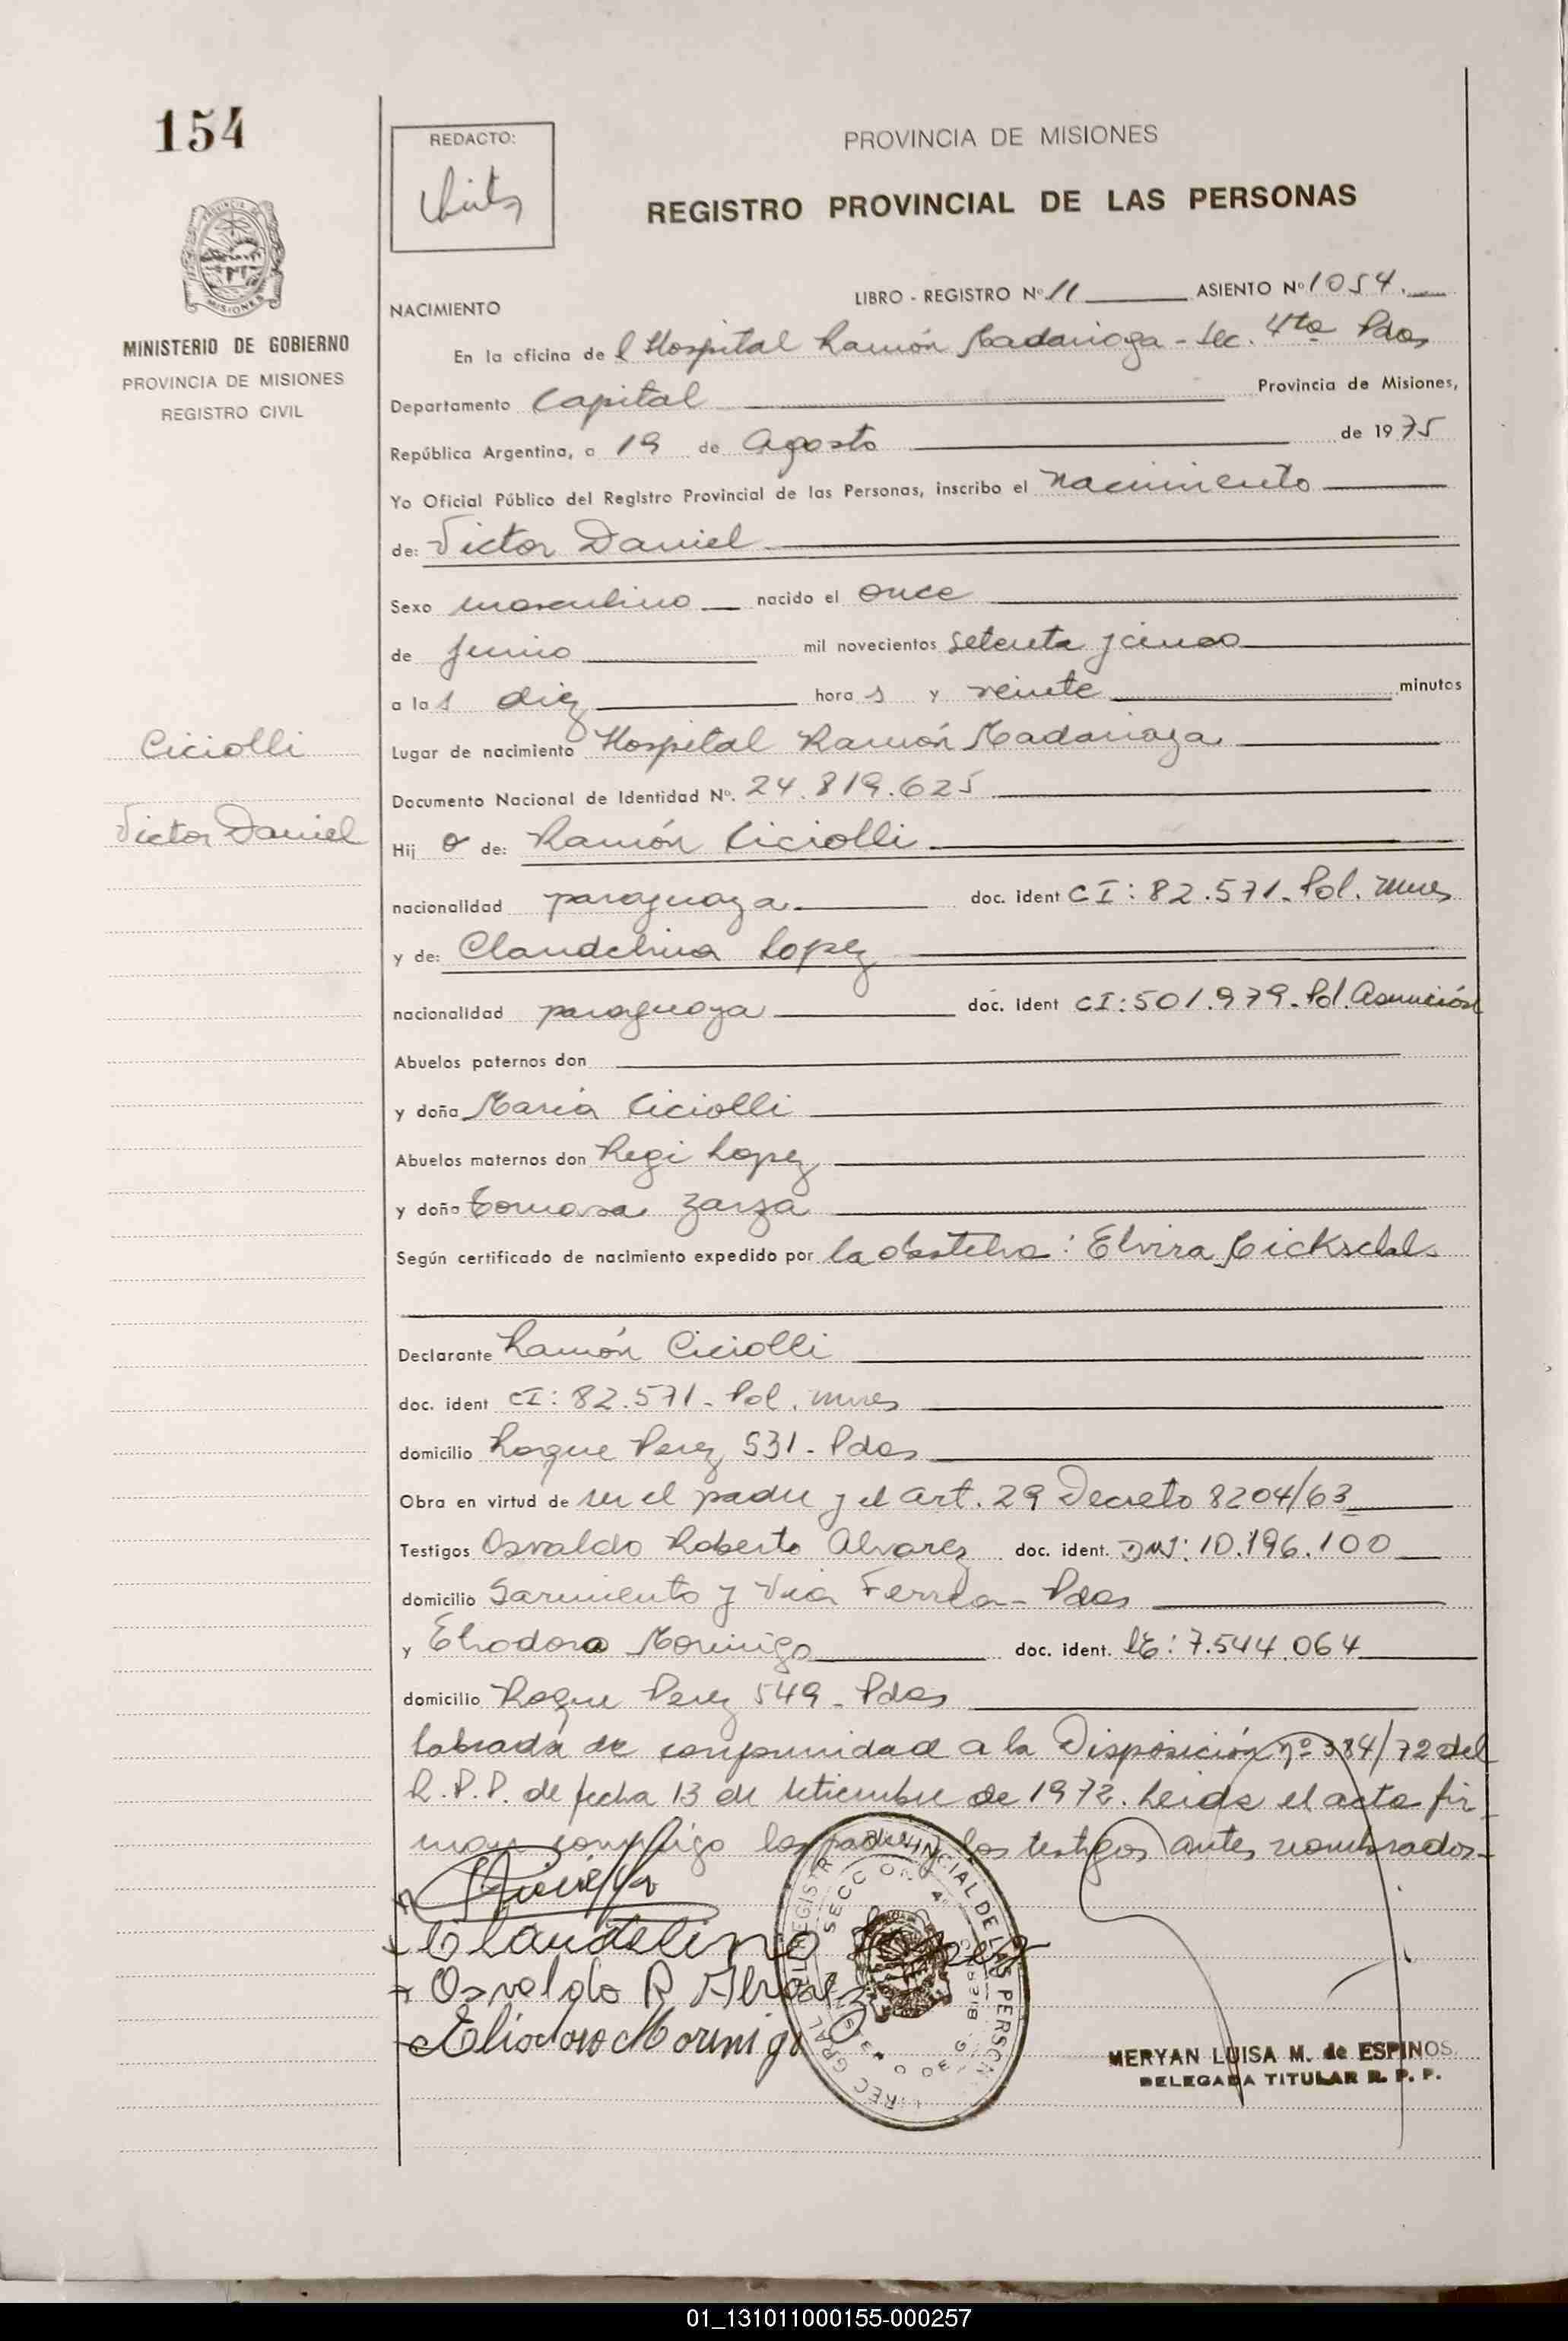 154
REDACTO:
PROVINCIA DE MISIONES
REGISTRO PROVINCIAL DE LAS PERSONAS
MINISTERIO DE GOBIERNO
PROVINCIA DE MISIONES
REGISTRO CIVIL
NACIMIENTO
LIBRO - REGISTRO Nº 11 ASIENTO Nº 1054.
En la oficina de l Hospital Ramón Madariaga - Sec. 4ta Pdas
Departamento Capital Provincia de Misiones,
República Argentina, a 19 de Agosto de 1975
Yo Oficial Público del Registro Provincial de las Personas, inscribo el Nacimiento
de: Victor Daniel
Sexo masculino nacido el once
de junio mil novecientos setenta y cinco
a las diez horas y veinte minutos
Ciciolli
Lugar de nacimiento Hospital Ramón Madariaga
Documento Nacional de Identidad Nº. 24.819.625
Victor Daniel
Hijo de: Ramón Ciciolli
nacionalidad paraguaya doc. ident CI: 82.571- Pol. Mnes
y de: Claudelina Lopez
nacionalidad paraguaya doc. ident CI: 501.979- Pol. Asunción
Abuelos paternos don
y doña María Ciciolli
Abuelos maternos don Regi Lopez
y doña Tomasa Zarza
Según certificado de nacimiento expedido por la obstetra: Elvira
Declarante Ramón Ciciolli
doc. ident CI: 82.571- Pol. Mnes
domicilio Roque Perez 531- Pdas
Obra en virtud de ser el padre y el art. 29 Decreto 8204/63
Testigos Osvaldo Roberto Alvarez doc. ident. DNI: 10.196.100
domicilio Sarmiento y Vía Ferrea- Pdas
y Eliodoro Morinigo doc. ident. LE: 7.544.064
domicilio Roque Perez 549- Pdas
labrada de conformidad a la Disposición nº 384/72 del
R.P.P. de fecha 13 de setiembre de 1972. Leída el acta fir-
man conmigo los padres y los testigos antes nombrados-
Claudelina Lopez
Osvaldo R Alvarez
Eliodoro Morinigo
MERYAN LUISA M. de ESPINOS
DELEGADA TITULAR R. P. P.
01_131011000155-000257